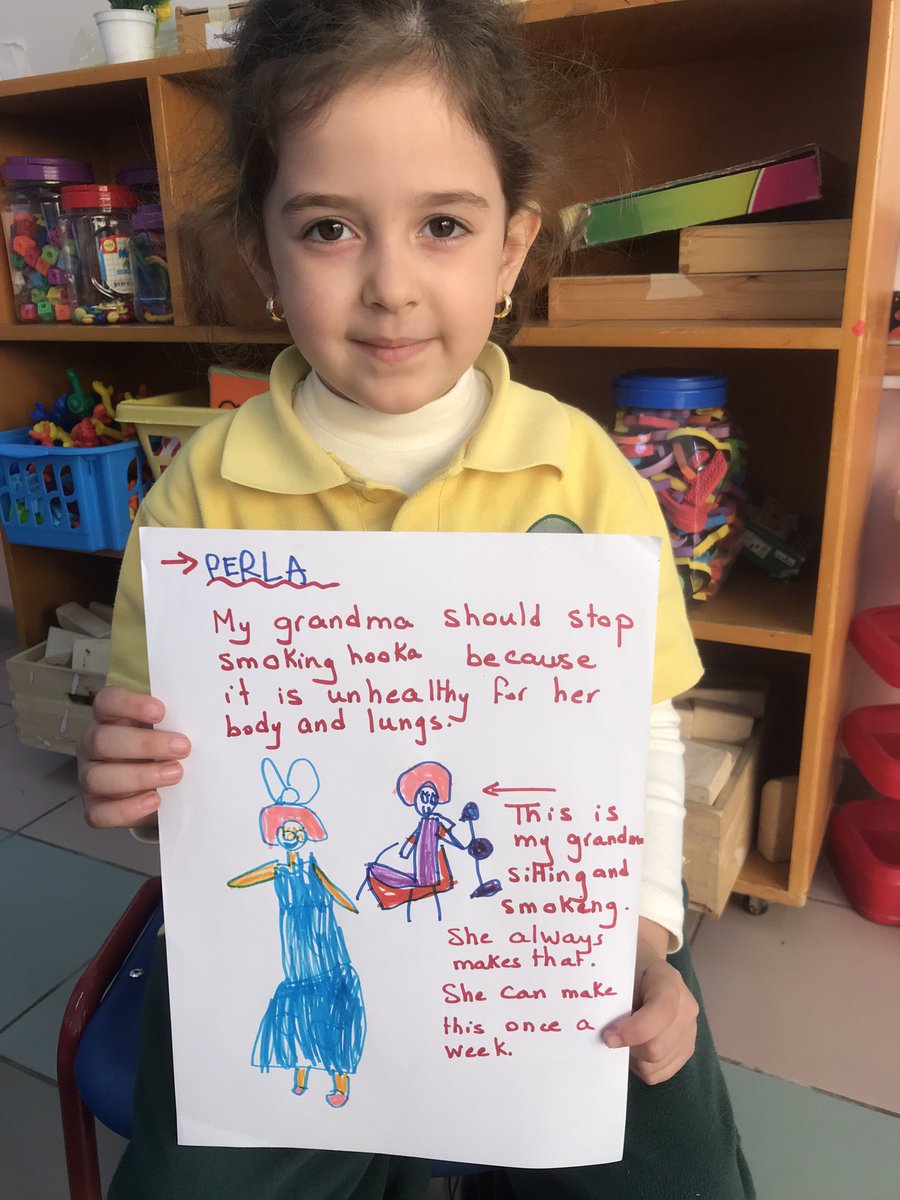 → PERLA
My grandma should stop
smoking hooka because
it is unhealthy for her
body and lungs.
This is
my grandma
sitting and
smoking.
She always
makes that.
She can make
this once a
week.